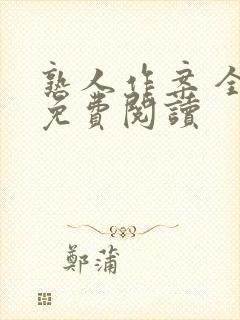 熟人作案全
免費閱讀
鄭蒲